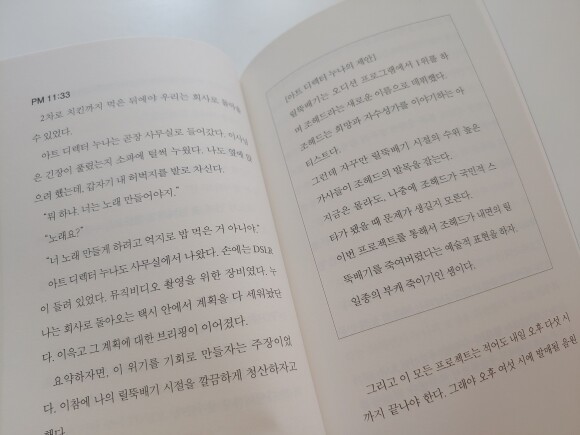 PM 11:33
2차로 치킨까지 먹은 뒤에야 우리는 회사로 돌아올
수 있었다.
아트 디렉터 누나는 곧장 사무실로 들어갔다. 이사님
은 긴장이 풀렸는지 소파에 털썩 누웠다. 나도 옆에 앉
으려 했는데, 갑자기 내 허벅지를 발로 차신다.
"뭐 하냐. 너는 노래 만들어야지."
"노래요?"
"너 노래 만들게 하려고 억지로 밥 먹은 거 아니야."
아트 디렉터 누나도 사무실에서 나왔다. 손에는 DSLR
이 들려 있었다. 뮤직비디오 촬영을 위한 장비였다. 누
나는 회사로 돌아오는 택시 안에서 계획을 다 세워놨단
다. 이윽고 그 계획에 대한 브리핑이 이어졌다.
요약하자면, 이 위기를 기회로 만들자는 주장이었
다. 이참에 나의 릴뚝배기 시절을 깔끔하게 청산하자고
했다.
[아트 디렉터 누나의 제안]
릴뚝배기는 오디션 프로그램에서 1위를 하
며 조헤드라는 새로운 이름으로 데뷔했다.
조헤드는 희망과 자수성가를 이야기하는 아
티스트다.
그런데 자꾸만 릴뚝배기 시절의 수위 높은
가사들이 조헤드의 발목을 잡는다.
지금은 몰라도, 나중에 조헤드가 국민적 스
타가 됐을 때 문제가 생길지 모른다.
이번 프로젝트를 통해서 조헤드가 내면의 릴
뚝배기를 죽여버렸다는 예술적 표현을 하자.
일종의 부캐 죽이기인 셈이다.
그리고 이 모든 프로젝트는 적어도 내일 오후 다섯 시
까지 끝나야 한다. 그래야 오후 여섯 시에 발매될 음원